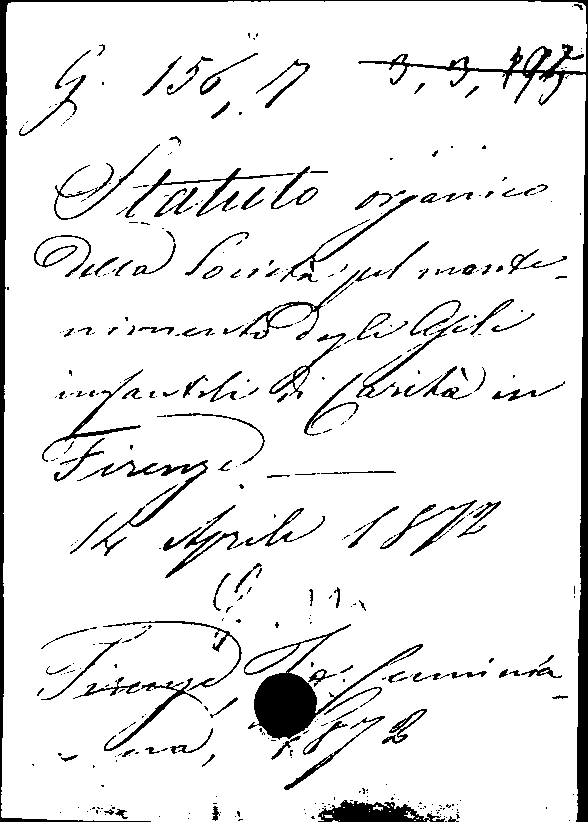 G. 156, 7 3, 3, 195
Statuto organico
della Società pel mante-
nimento degli Asili
infantili di Carità in
Firenze. —
14 Aprile 1872
G.
Firenze, Tip.
1872